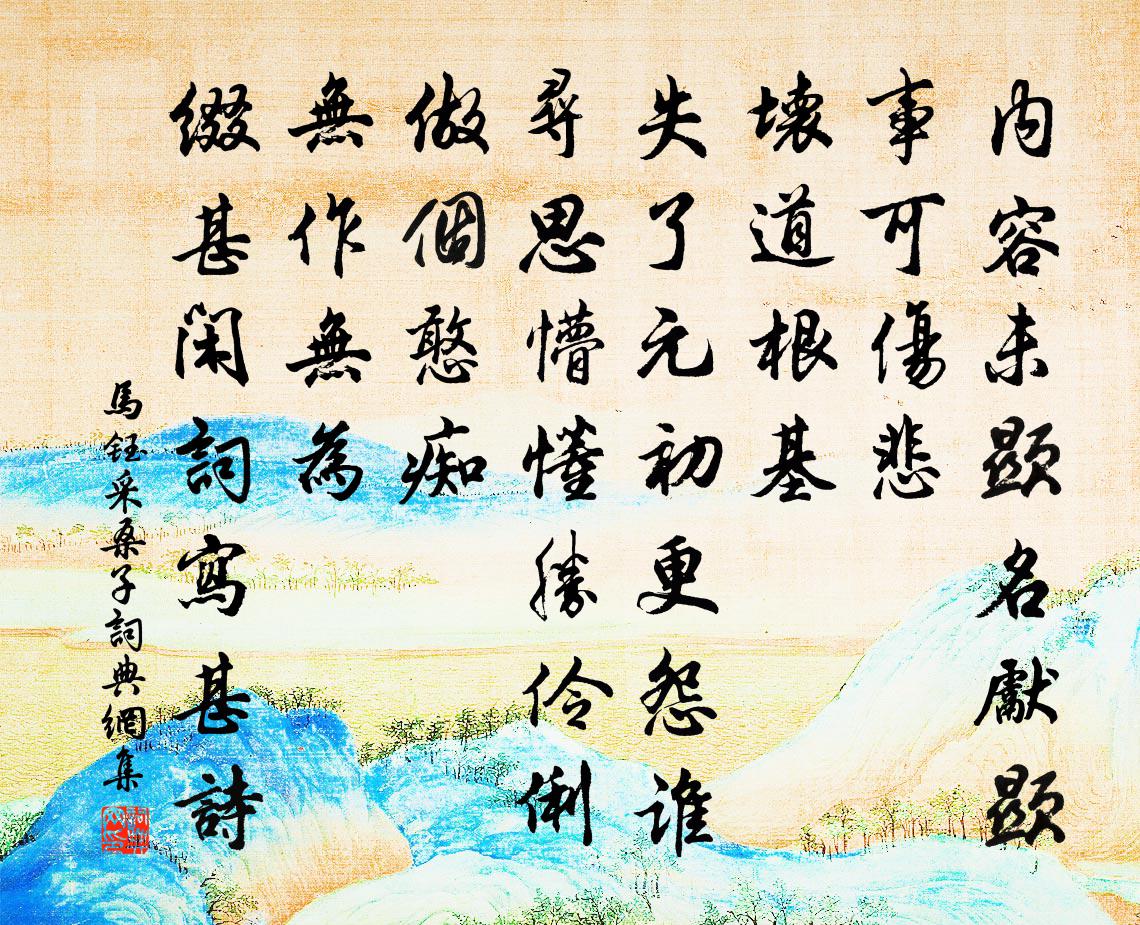 內容未顯名獻顯
事可傷悲
壞道根基
失了元初更怨誰
尋思懵懂勝伶俐
做個憨痴
無作無為
綴甚閑詞寫甚詩
馬鈺采桑子詞典網集